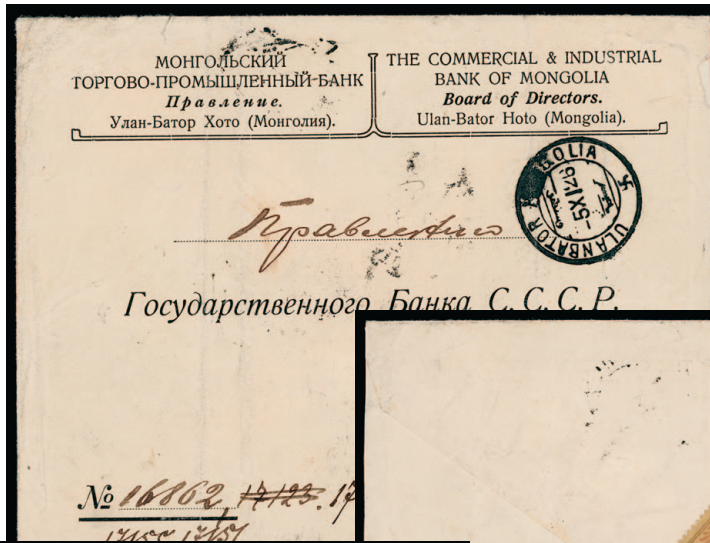 МОНГОЛЬСКИЙ
ТОРГОВО-ПРОМЫШЛЕННЫЙ БАНК
Правление.
Улан-Батор Хото (Монголия).
THE COMMERCIAL & INDUSTRIAL
BANK OF MONGOLIA
Board of Directors.
Ulan-Bator Hoto (Mongolia).
ULANBATOR GOLIA
-5 X 1 26
Правлению
Государственного Банка С. С. С. Р.
№ 16862, 17123. 17